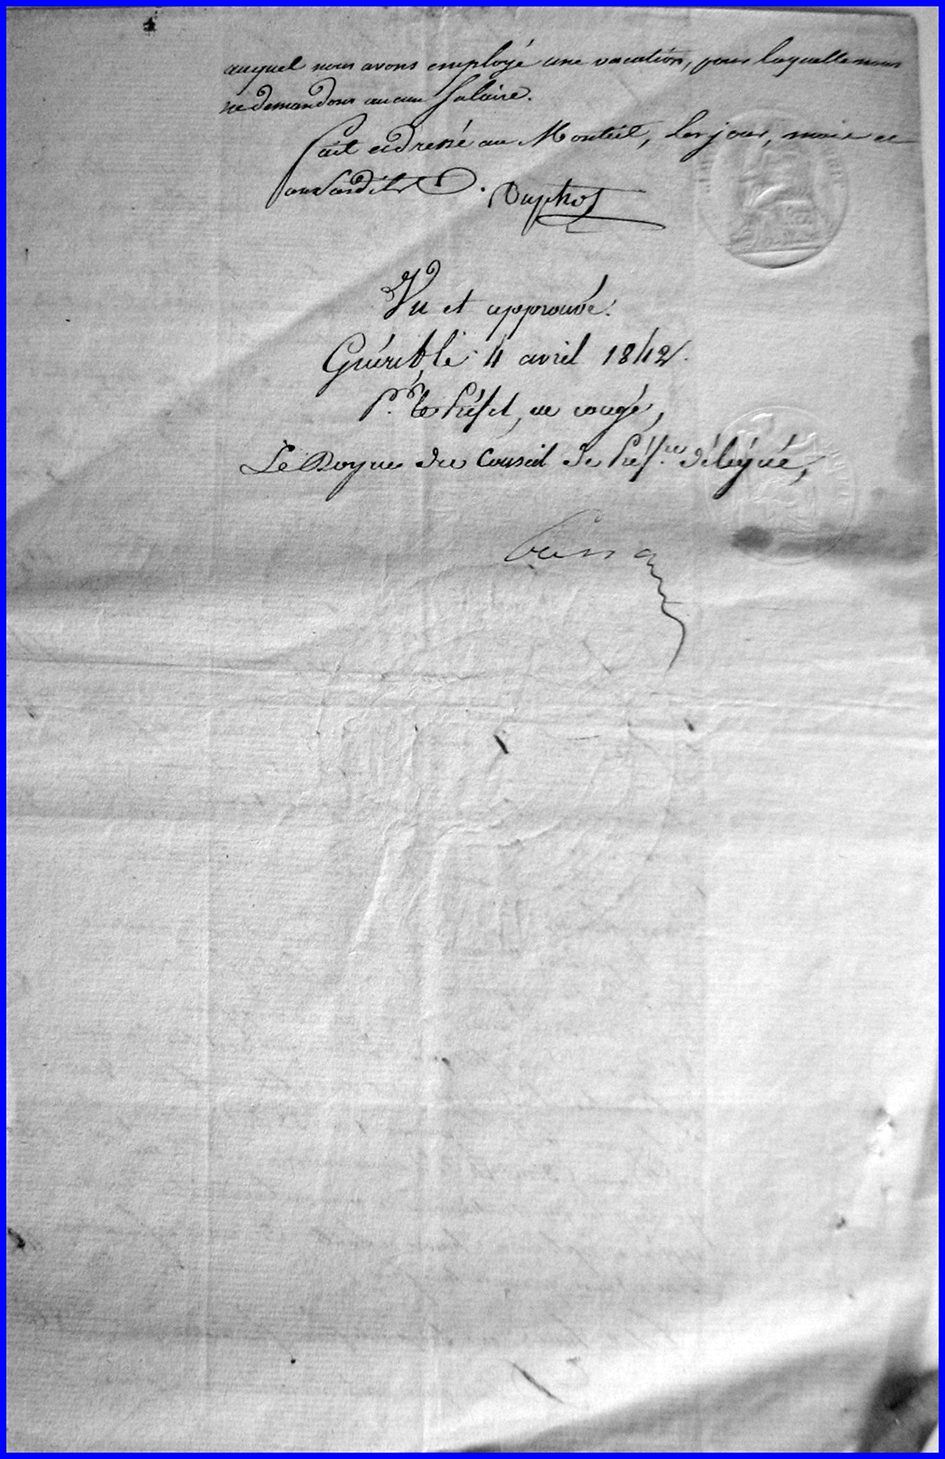 auquel nous avons employé une vacation, pour laquelle nous
ne demandons aucun Salaire.
Fait et dressé au Monteil, les jour, mois et
an susdits. Duphot
Vu et approuvé:
Guéret, le 4 avril 1842.
Pr. le Préfet, en congé,
Le Doyen du Conseil de Préf.re délégué,